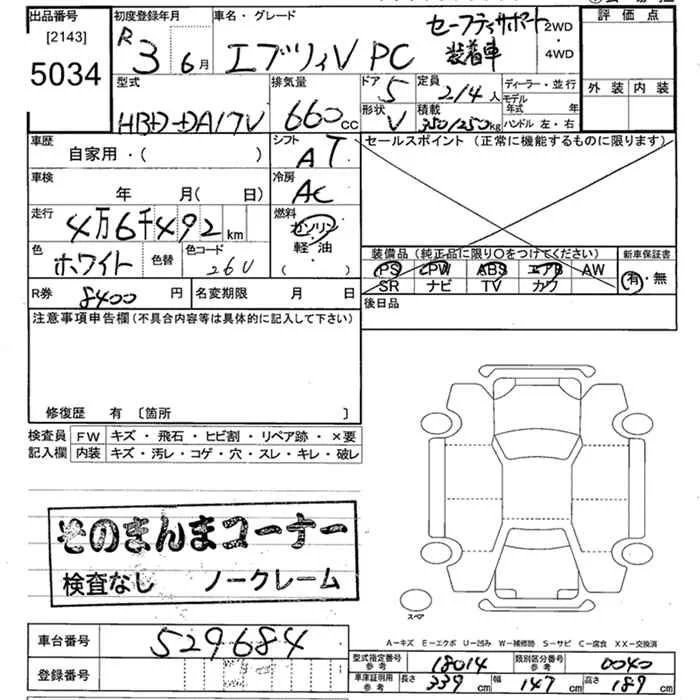 出品番号
[2143]
5034
初度登録年月
R3 6月
車名・グレード
エブリィV PC
セーフティサポート
装着車
2WD
・
4WD
評価点
外装 内装
型式
HBD-DA17V
排気量
660cc
ドア 5
形状 V
定員 2/4人
積載 350/250kg
ディーラー・並行
モデル年式 年
ハンドル 左・右
車歴
自家用・( )
シフト
AT
セールスポイント (正常に機能するものに限ります)
車検
年 月(日)
冷房
AC
走行
4万6千492km
燃料
ガソリン
軽・油
( )
色
ホワイト
色替
色コード
26U
装備品 (純正品に限り〇をつけてください)
PS PW ABS エアB AW
SR ナビ TV カワ
新車保証書
有・無
R券 8400円
名変期限 月 日
後日品
注意事項申告欄(不具合内容等は具体的に記入して下さい)
修復歴 有 [箇所 ]
検査員
記入欄
FW キズ・飛石・ヒビ割・リペア跡・×要
内装 キズ・汚レ・コゲ・穴・スレ・キレ・破レ
そのまんまコーナー
検査なし ノークレーム
スペア
A-キズ E-エクボ U-凹み W-補修跡 S-サビ C-腐食 XX-交換済
車台番号 529684
登録番号
型式指定番号
参考
18014
類別区分番号
参考
0040
車庫証明用
参考
長さ 339cm 幅 147cm 高さ 189cm